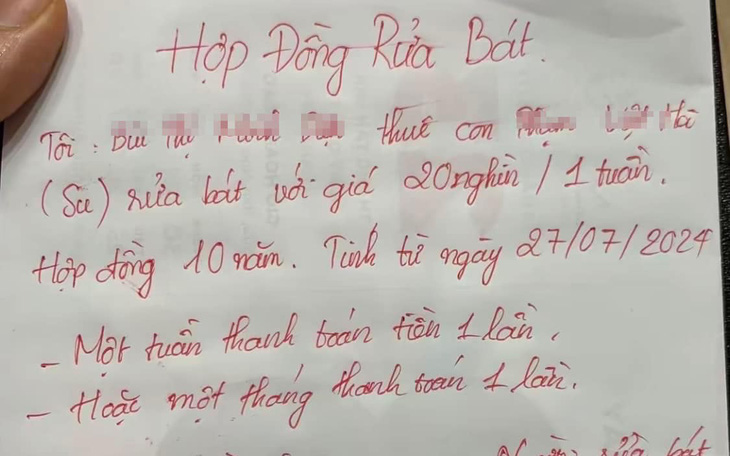 Hợp Đồng Rửa Bát.
Tôi : thuê con Hà
(Su) rửa bát với giá 20 nghìn / 1 tuần.
Hợp đồng 10 năm. Tính từ ngày 27/07/2024
- Một tuần thanh toán tiền 1 lần.
- Hoặc một tháng thanh toán 1 lần.
rửa bát